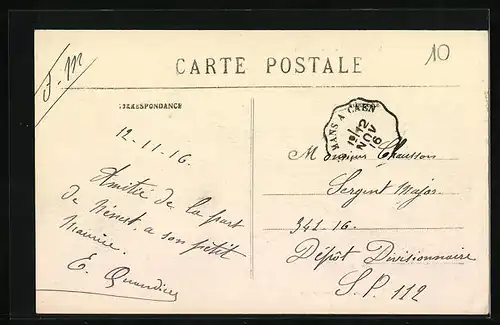 F. M
10
CARTE POSTALE
CORRESPONDANCE
MANS A CAEN
12
NOV
16
12-11-16.
Amitié de la part
de Nénest, a son petit
Maurice.
E.
Monsieur Chausson
Sergent Major
341-16.
Dépôt Divisionnaire
S.P. 112